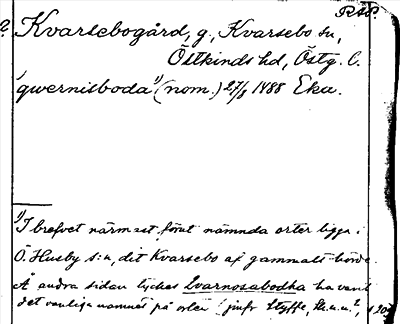 ? Kvarsebogård, g., Kvarsebo sn,
Östkinds hd, Östg. l.
qwernisboda ¹) (nom.) 27/8 1488 Eka.
¹) I brefvet närmast förut nämnda orter ligga i
Ö. Husby s:n, dit Kvarsebo af gammalt hörde.
Å andra sidan tyckes Qvarnosabodha ha varit
det vanliga namnet på orten (jmfr Styffe,